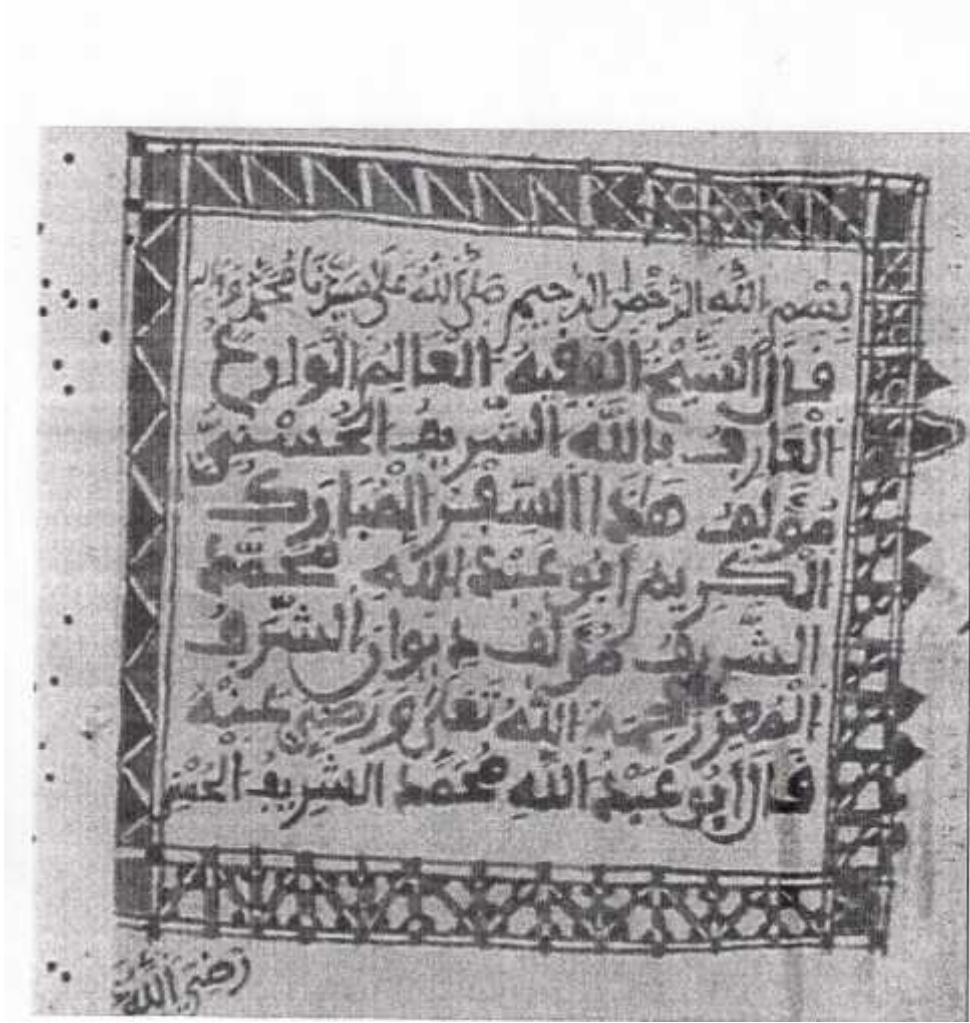 بسم الله الرحمن الرحيم صلى الله على سيدنا محمد وءاله
قال الشيخ الفقيه العالم الوارع
العارف بالله الشريف الحسني
مؤلف هذا السفر المبارك
الكريم أبو عبد الله محمد
الشريف مؤلف ديوان الشرف
المعزز رحمه الله تعلى ورضي عنه
قال أبو عبد الله محمد الشريف الحسن
رضي الله